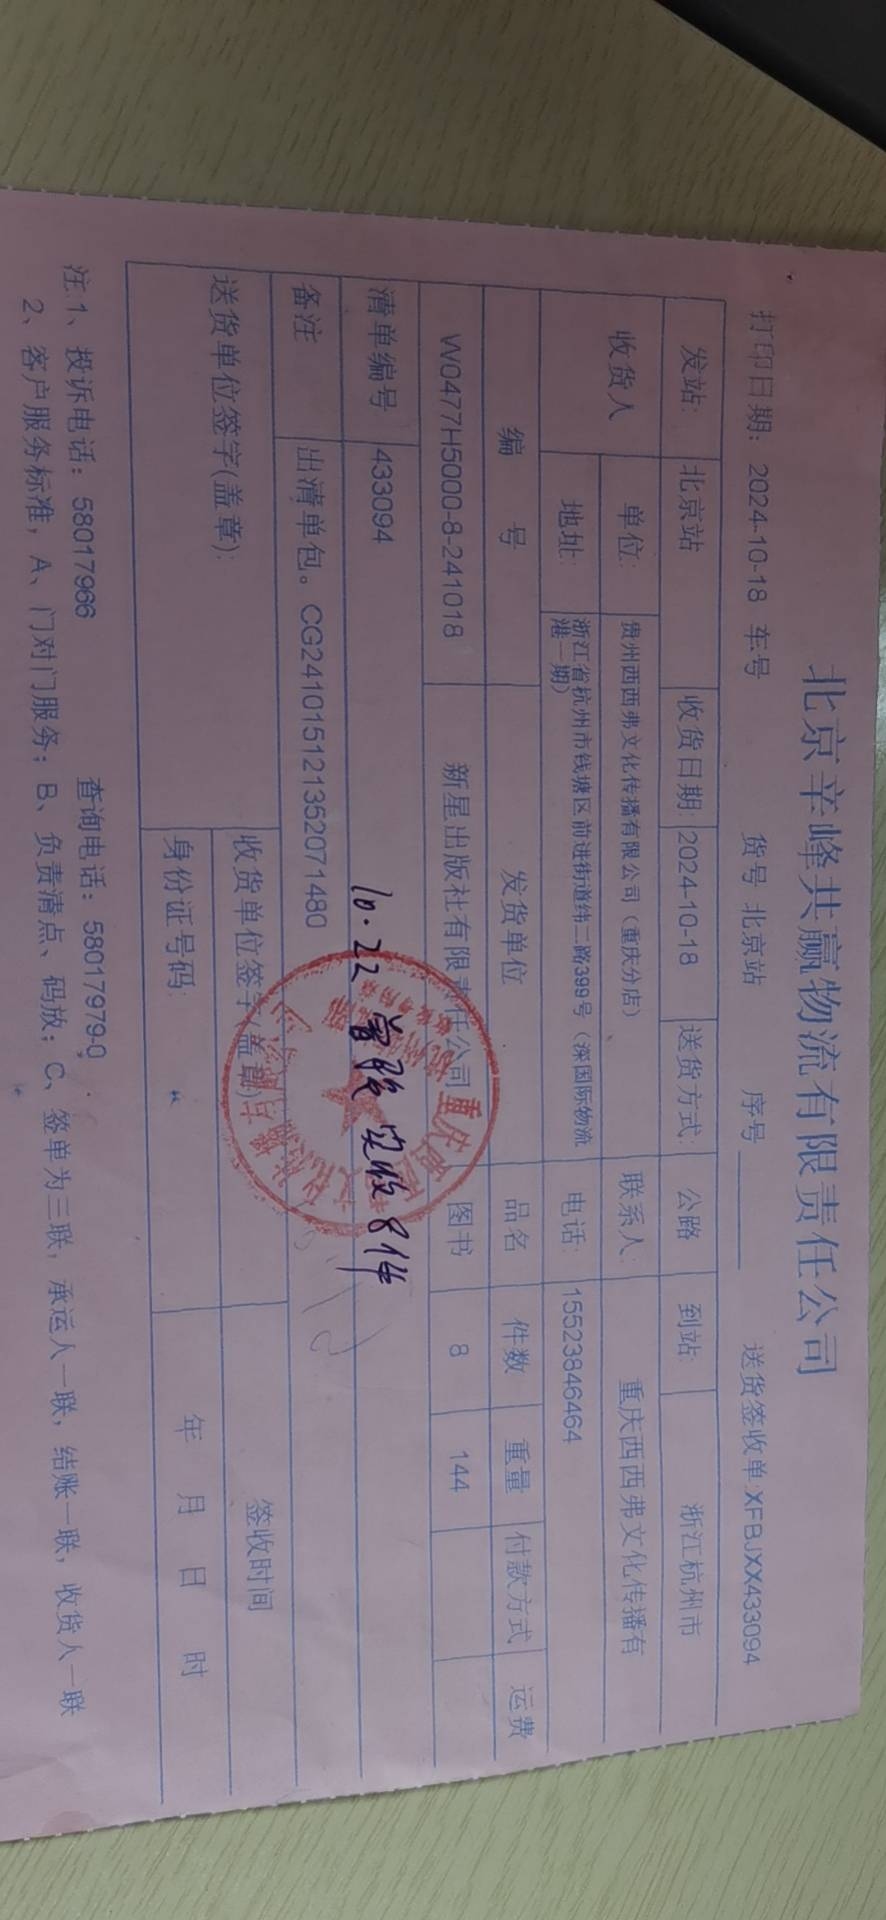 北京辛峰共赢物流有限责任公司
打印日期: 2024-10-18 车号 货号 北京站 序号 送货签收单:XFBJXX433094
发站: 北京站 收货日期: 2024-10-18 送货方式: 公路 到站: 浙江杭州市
收货人 单位: 贵州西西弗文化传播有限公司（重庆分店） 联系人: 重庆西西弗文化传播有
地址: 浙江省杭州市钱塘区前进街道纬二路399号（深国际物流
港一期） 电话: 15523846464
编 号 发货单位 品名 件数 重量 付款方式 运费
W0477H5000-8-241018 新星出版社有限责任公司 图书 8 144
清单编号 433094
10.22 实收8件
备注 出清单包。CG241015121352071480
送货单位签字(盖章): 收货单位签字(盖章) 签收时间
身份证号码: 年 月 日 时
注:1、投诉电话: 58017966 查询电话: 58017979-0
2、客户服务标准，A、门对门服务；B、负责清点、码放；C、签单为三联，承运人一联，结账一联，收货人一联